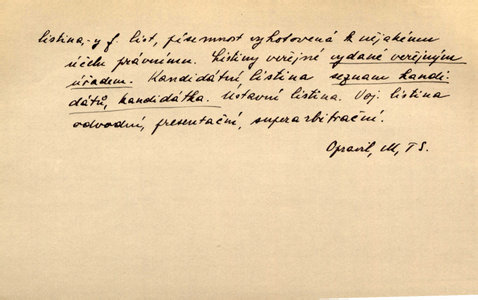 listina,-y f. list, písemnost vyhotovená k nějakému
účelu právnímu. Listiny veřejné vydané veřejným
úřadem. Kandidátní listina seznam kandi
dátů, kandidátka. Ústavní listina. Voj. listina
odvodní, presentační, superarbitrační.
Opravil, M, TS.